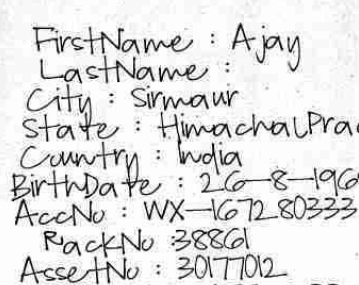 FirstName : Ajay
LastName :
City : Sirmaur
State : Himachal
Country : India
BirthDate : 26-8-196
AccNo : WX-167280333
RackNo :38861
AssetNo : 30177012